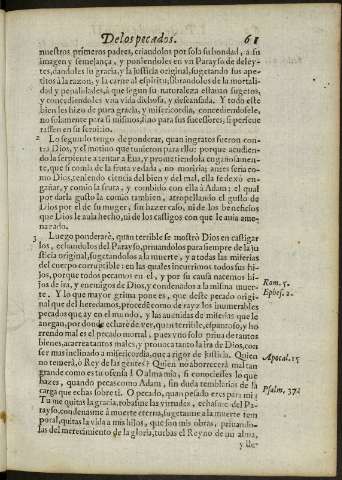 De los pecados. 61
nuestros primeros padres, criandolos por sola su bondad, a su
imagen y semejança, y poniendoles en vn Parayso de deley-
tes, dandoles su gracia, y la justicia original, sugetando sus ape-
titos à la razon, y la carne al espiritu, librandoles de la mortali-
dad y penalidades, à que segun su naturaleza estauan sugetos,
y concediendoles vna vida dichosa, y descansada. Y todo este
bien les hizo de pura gracia, y misericordia, concediendosele,
no solamente para si mismos, sino para sus sucessores, si perseue
rassen en su seruicio.
2 Lo segundo tengo de ponderar, quan ingratos fueron con-
tra Dios, y el motiuo que tuuieron para ello: porque acudien-
do la serpiente a tentar a Eua, y prometiendola engañosamen-
te, que si comia de la fruta vedada, no moriria; antes seria co-
mo Dios, teniendo ciencia del bien y del mal, ella se dexò en-
gañar, y comio la fruta, y combido con ella à Adam; el qual
por darla gusto la comio tambien, atropellando el gusto de
Dios por el de su muger, sin hazer caso, ni de los beneficios
que Dios le auia hecho, ni de los castigos con que le auia ame-
nazado.
3 Luego ponderarè, quan terrible se mostrò Dios en castigar
los, echandolos del Parayso, priuandolos para siempre de la ju
sticia original, sugetandolos a la muerte, y a todas las miserias
del cuerpo corruptible: en las quales incurrimos todos sus hi-
jos, porque todos pecamos en el, y por su causa nacemos hi-
jos de ira, y enemigos de Dios, y condenados a la misma muer-
te. Y lo que mayor grima pone es, que deste pecado origi-
nal que del heredamos, procede como de rayz los innumerables
pecados que ay en el mundo, y las auenidas de miserias que le
anegan, por donde echarè de ver, quan terrible, espantoso, y ho
rrendo mal es el pecado mortal, pues vno solo priua de tantos
bienes, acarrea tantos males, y prouoca tanto la ira de Dios, con
ser mas inclinado a misericordia, que a rigor de justicia. Quien
no temerà, ò Rey de las gentes? Quien no aborrecerà mal tan
grande como es tu ofensa? O alma mia, si conociesses lo que
hazes, quando pecas como Adam, sin duda temblarias de la
carga que echas sobre ti. O pecado, quan pesado eres para mi!
Tu me quitas la gracia, robasme las virtudes, echasme del Pa-
rayso, condenasme à muerte eterna, sugetasme a la muerte tem
poral, quitas la vida a mis hijos, que son mis obras, priuando-
las del merecimiento de la gloria, turbas el Reyno de mi alma,
Rom. 5.
Ephes. 2.
Apocal. 15
Psalm. 37.